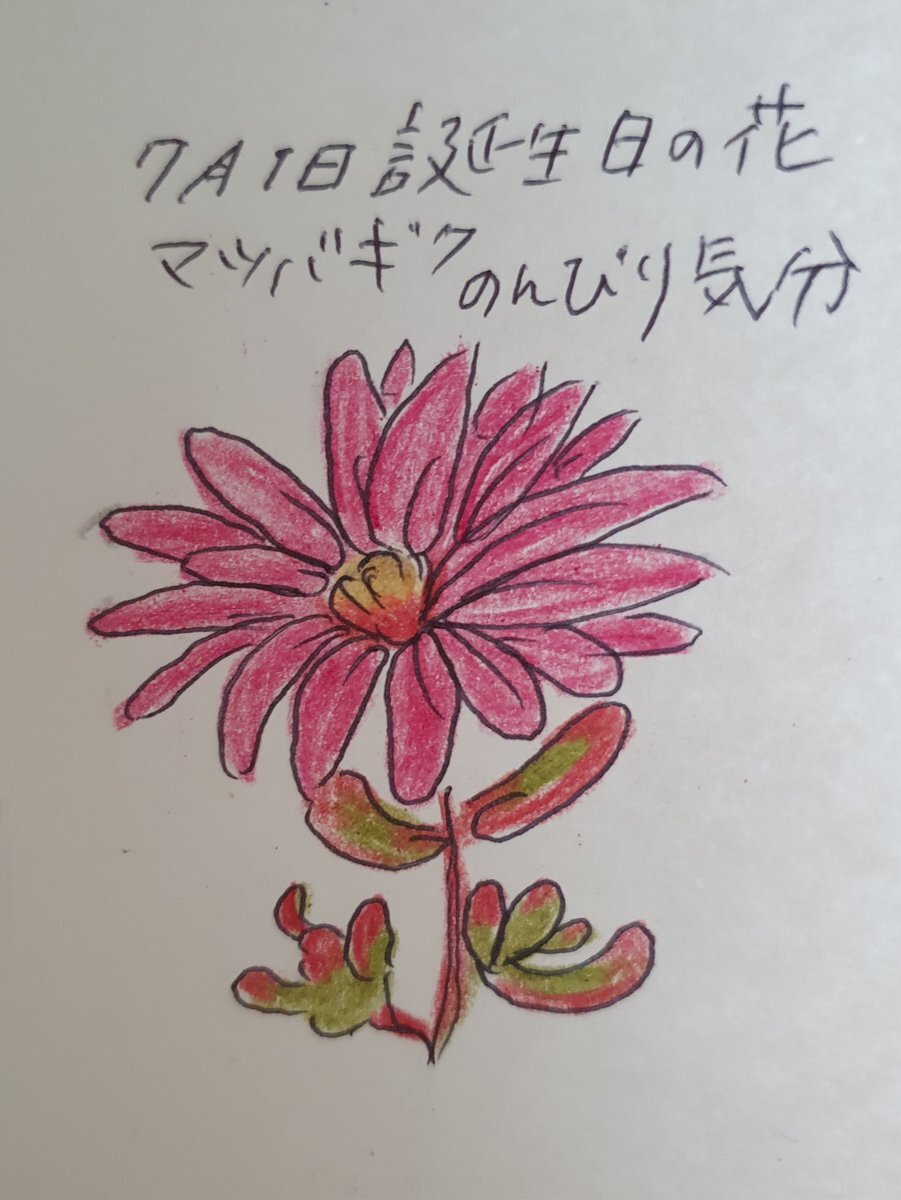 7月1日 誕生日の花
マツバギク のんびり気分